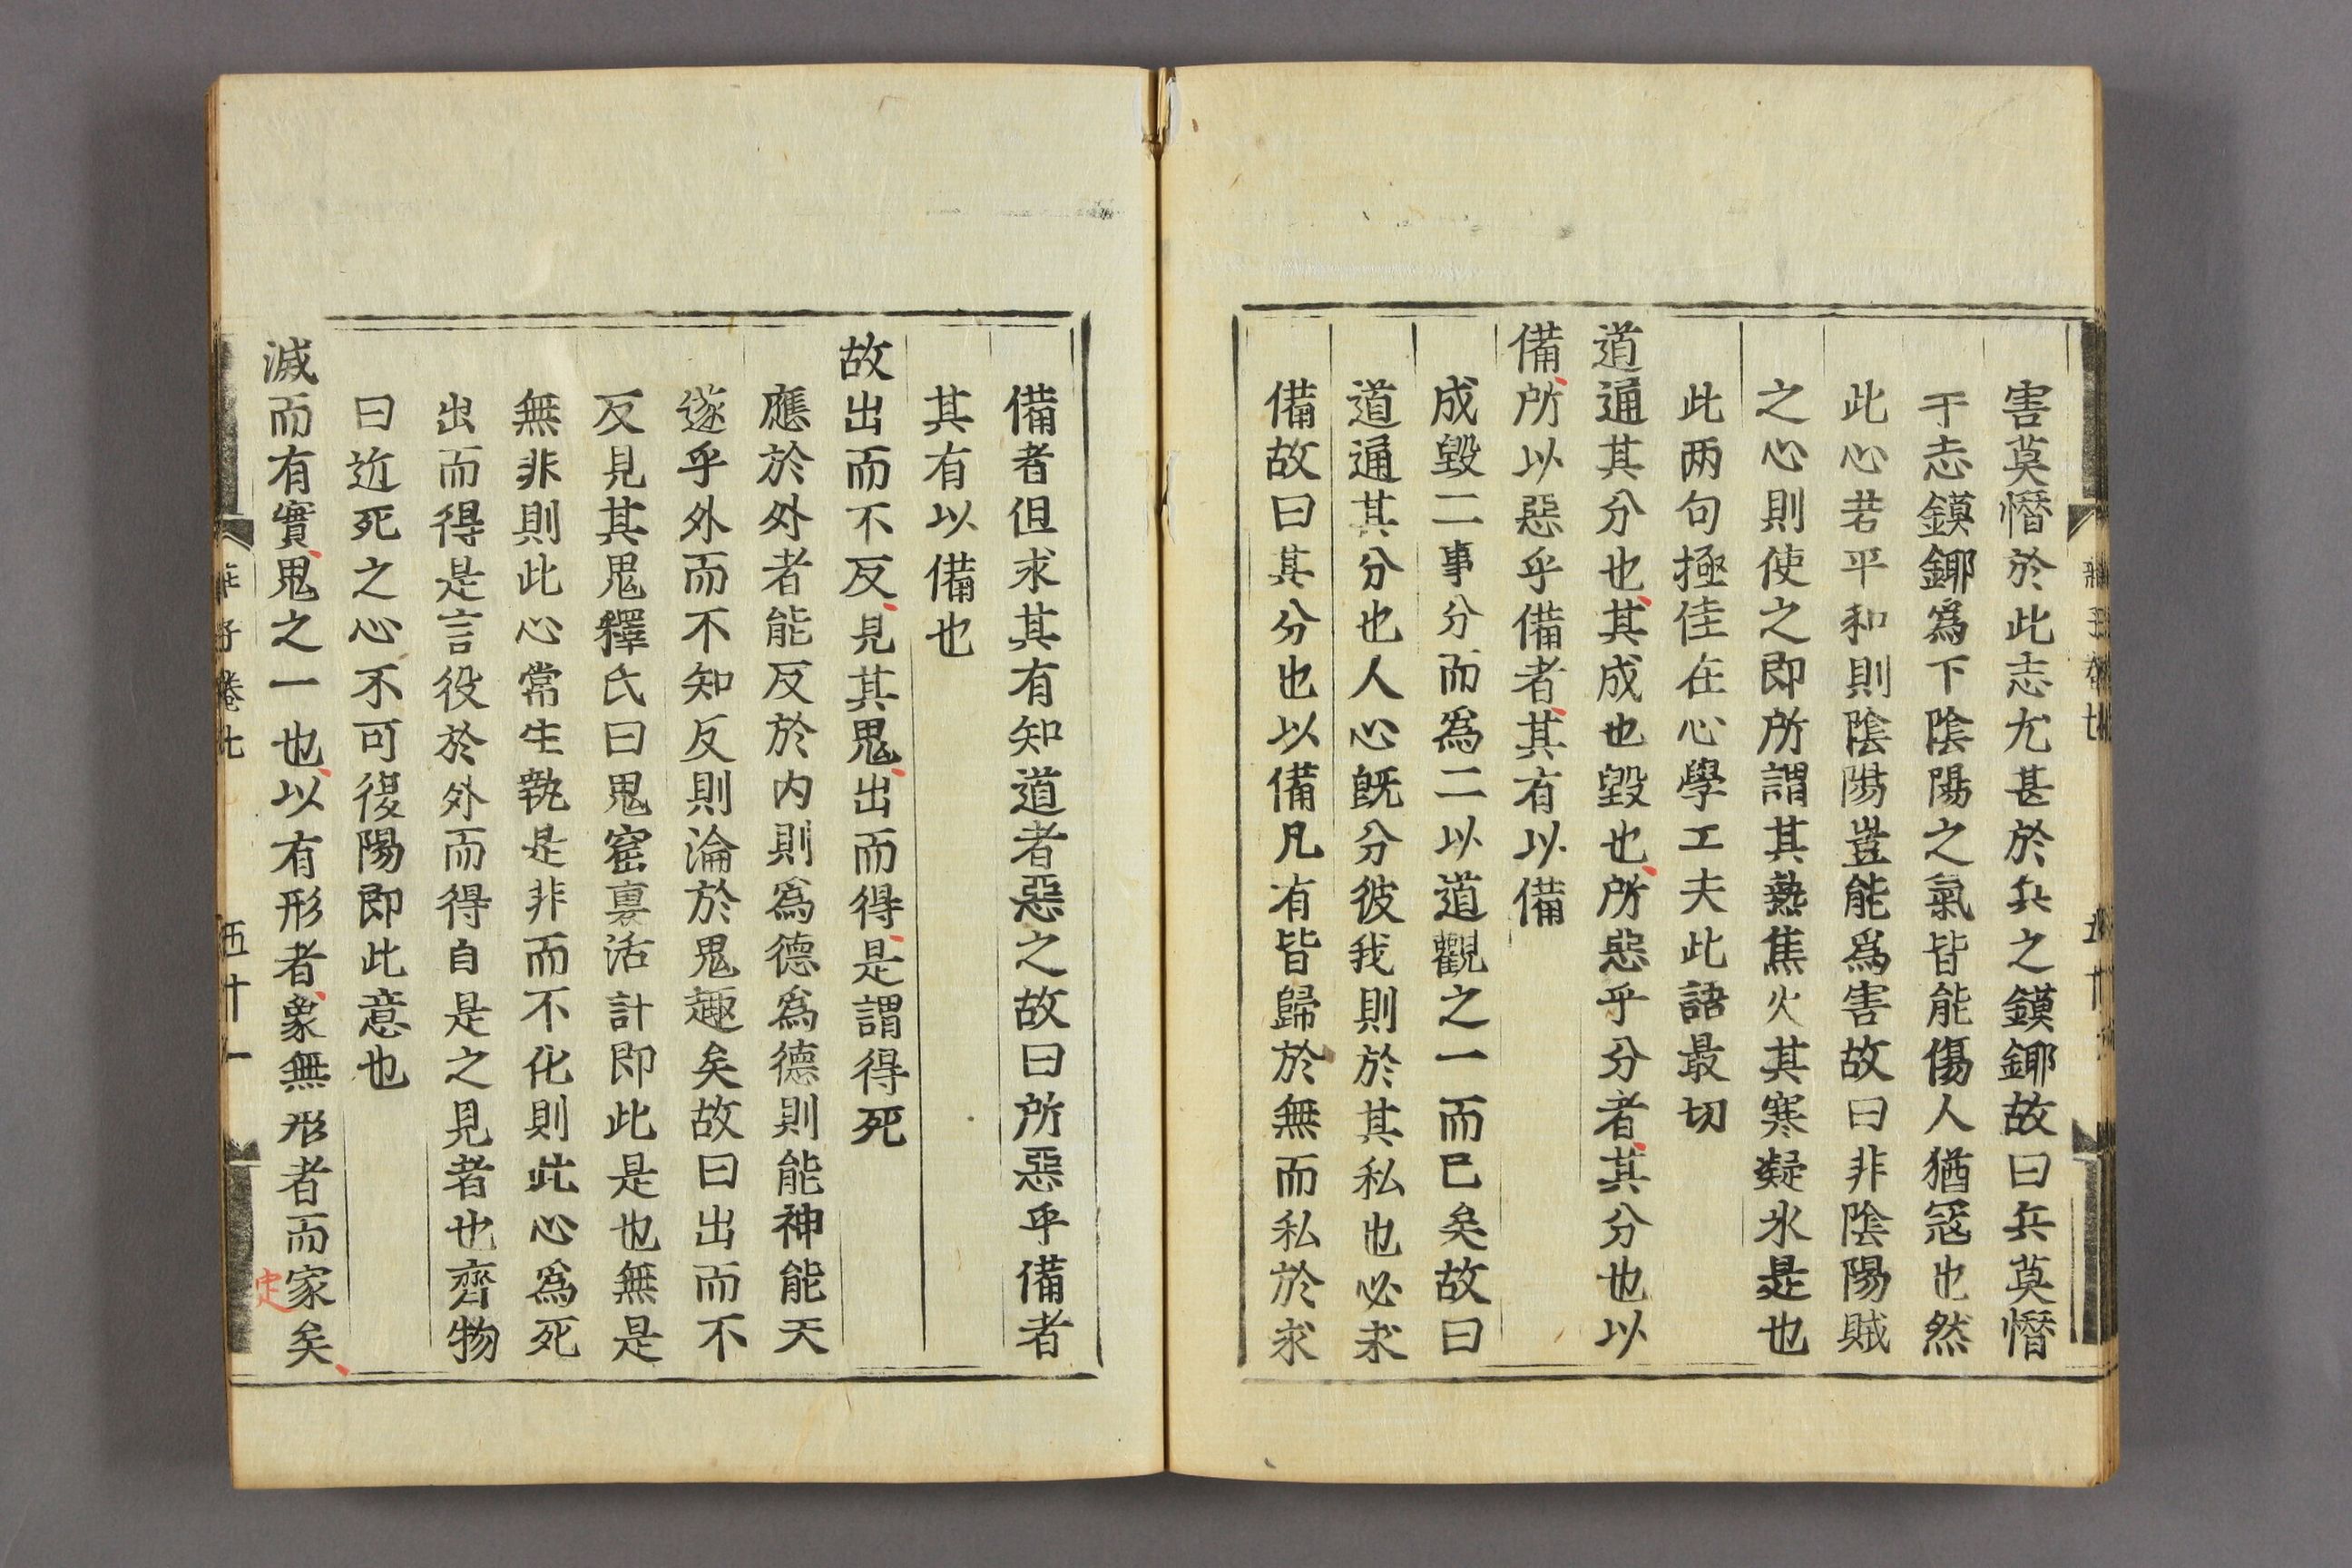 害莫憯於此志尤甚於兵之鏌鎁故曰兵莫憯
于志鏌鎁爲下陰陽之氣皆能傷人猶寇也然
此心若平和則陰陽豈能爲害故曰非陰陽賊
之心則使之即所謂其熱焦火其寒凝氷是也
此两句極佳在心學工夫此語最切
道通其分也其成也毀也所惡乎分者其分也以
備所以惡乎備者其有以備
成毀二事分而爲二以道觀之一而已矣故曰
道通其分也人心旣分彼我則於其私也必求
備故曰其分也以備凡有皆歸於無而私於求
備者但求其有知道者惡之故曰所惡乎備者
其有以備也
故出而不反見其鬼出而得是謂得死
應於外者能反於内則爲德爲德則能神能天
遂乎外而不知反則淪於鬼趣矣故曰出而不
反見其鬼釋氏曰鬼窟裏活計即此是也無是
無非則此心常生執是非而不化則此心爲死
出而得是言役於外而得自是之見者也齊物
曰近死之心不可復陽即此意也
滅而有實鬼之一也以有形者象無形者而家矣
定
莊子卷七 五十一